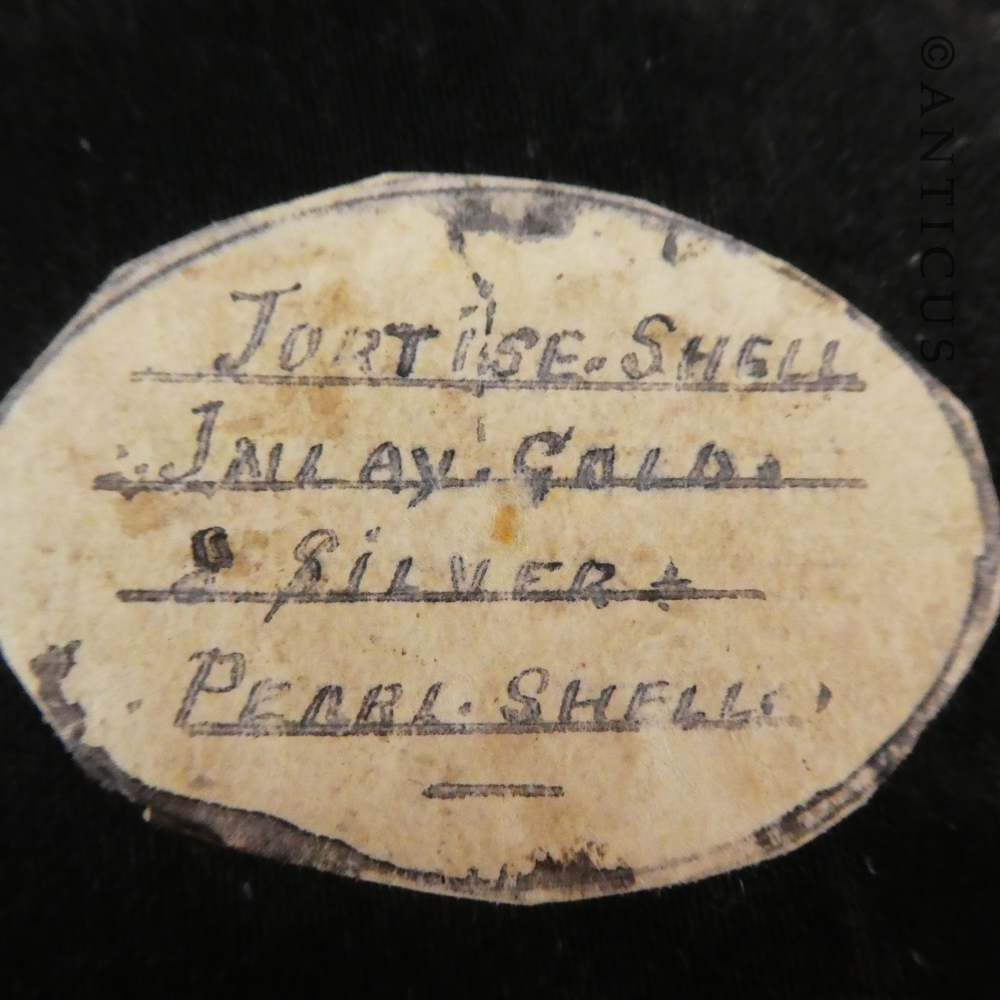 Tortise. Shell
Inlay. Gold.
& Silver &
Pearl. Shell.
©ANTICUS